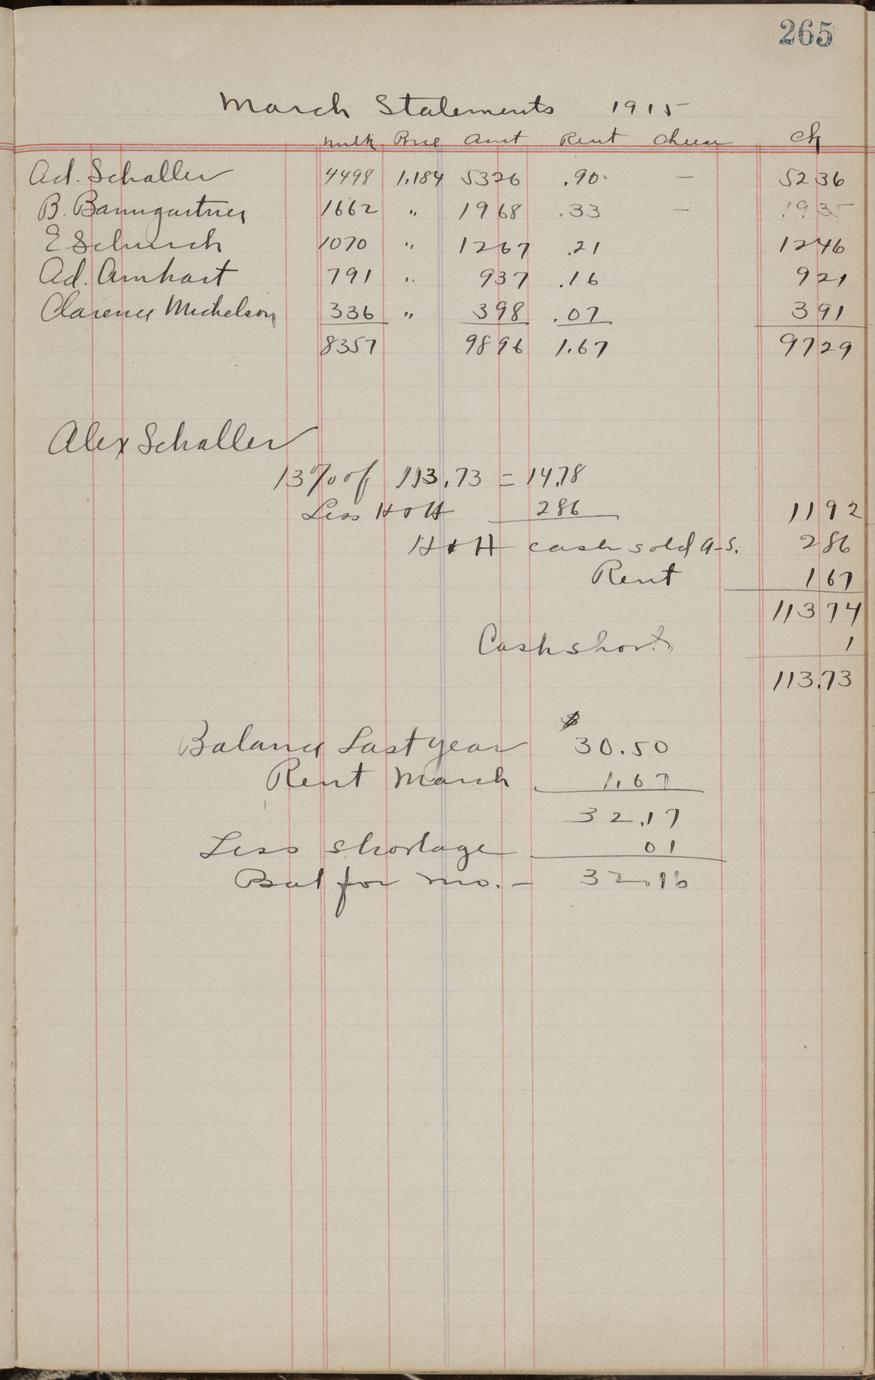 265
March Statements 1915
milk Price Amt Rent Cheese Ck
Ad. Schaller 4498 1.184 5326 .90 — 5236
B. Baumgartner 1662 " 1968 .33 — 1935
E Schurch 1070 " 1267 .21 1246
Ad. Amhart 791 " 937 .16 921
Clarence Michelson 336 " 398 .07 391
8357 9896 1.67 9729
Alex Schaller
13% of 113.73 = 14.78
Less H & H 286 1192
H & H cash sold a-s. 286
Rent 167
11374
Cash short 1
113.73
$
Balance Last year 30.50
Rent March 1.67
32.17
Less shortage 01
Bal for mo. — 32.16